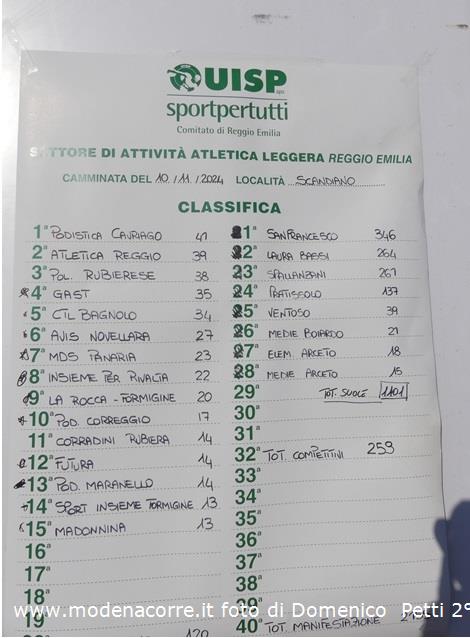 UISP
sportpertutti
Comitato di Reggio Emilia
SETTORE DI ATTIVITÀ ATLETICA LEGGERA REGGIO EMILIA
CAMMINATA DEL 10/11/2024 LOCALITÀ SCANDIANO
CLASSIFICA
1ª PODISTICA CAVRIAGO 41
2ª ATLETICA REGGIO 39
3ª POL. RUBIERESE 38
4ª GAST 35
5ª CTL BAGNOLO 34
6ª AVIS NOVELLARA 27
7ª MDS PANARIA 23
8ª INSIEME PER RIVALTA 22
9ª LA ROCCA - FORMIGINE 20
10ª POD. CORREGGIO 17
11ª CORRADINI RUBIERA 14
12ª FUTURA 14
13ª POD. MARANELLO 14
14ª SPORT INSIEME FORMIGINE 13
15ª MADONNINA 13
16ª
17ª
18ª
19
120
1ª SAN FRANCESCO 346
2ª LAURA BASSI 264
23ª SPALLANZANI 261
24ª PRATISSOLO 137
25ª VENTOSO 39
26ª MEDIE BOIARDO 21
27ª ELEM. ARCETO 18
28ª MEDIE ARCETO 15
29ª TOT. SCUOLE 1101
30ª
31ª
32ª TOT. COMPETITIVI 259
33ª
34ª
35ª
36ª
37ª
38ª
39ª
40ª TOT. MANIFESTAZIONE
www.modenacorre.it foto di Domenico Petti 2°